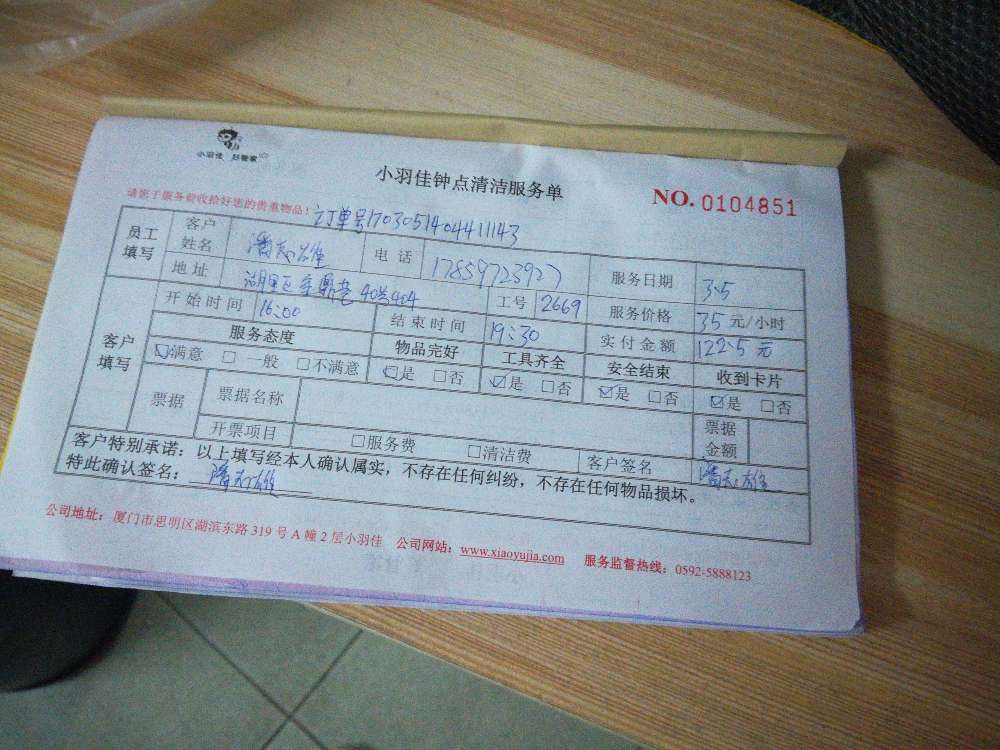 小羽佳 好管家
小羽佳钟点清洁服务单
NO. 0104851
请您于服务前收拾好您的贵重物品！ 订单号1703051404411143
员工填写 客户姓名 潘志雄 电话 17859723927 服务日期 3.5
地址 湖里区 40号404 工号 2669 服务价格 35 元/小时
客户填写 开始时间 16:00 结束时间 19:30 实付金额 122.5 元
服务态度 物品完好 工具齐全 安全结束 收到卡片
☑满意 □一般 □不满意 ☑是 □否 ☑是 □否 ☑是 □否 ☑是 □否
票据 票据名称 票据金额
开票项目 □服务费 □清洁费 客户签名 潘志雄
客户特别承诺：以上填写经本人确认属实，不存在任何纠纷，不存在任何物品损坏。
特此确认签名： 潘志雄
公司地址：厦门市思明区湖滨东路 319 号 A 幢 2 层小羽佳 公司网站：www.xiaoyujia.com 服务监督热线：0592-5888123